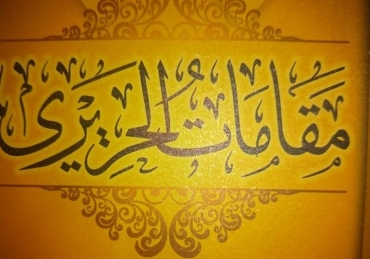 مقامات الحريرى